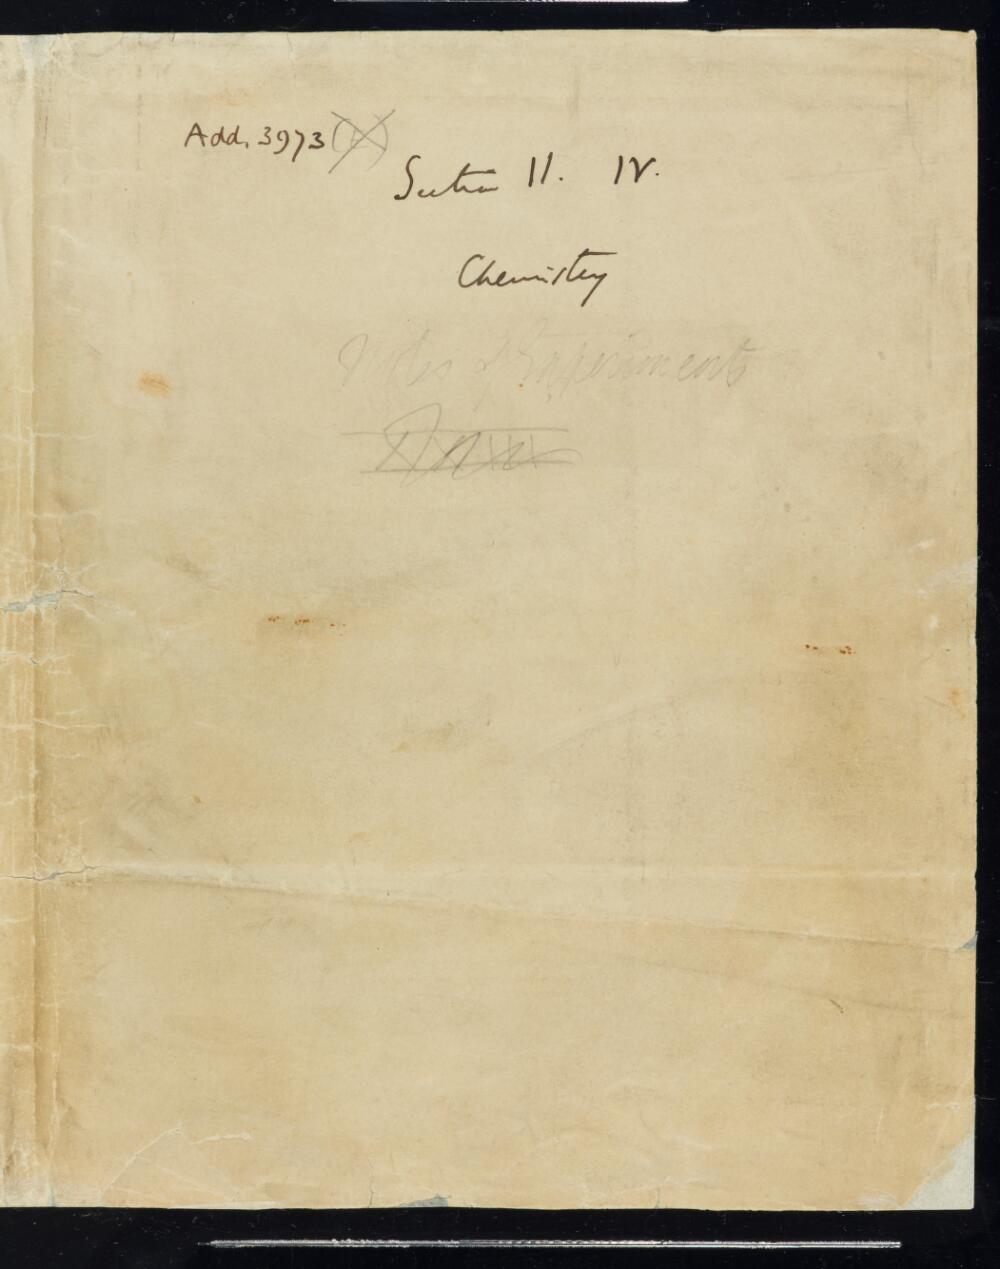 Add. 3973 (A)
Section II. IV.
Chemistry
Notes of Experiments